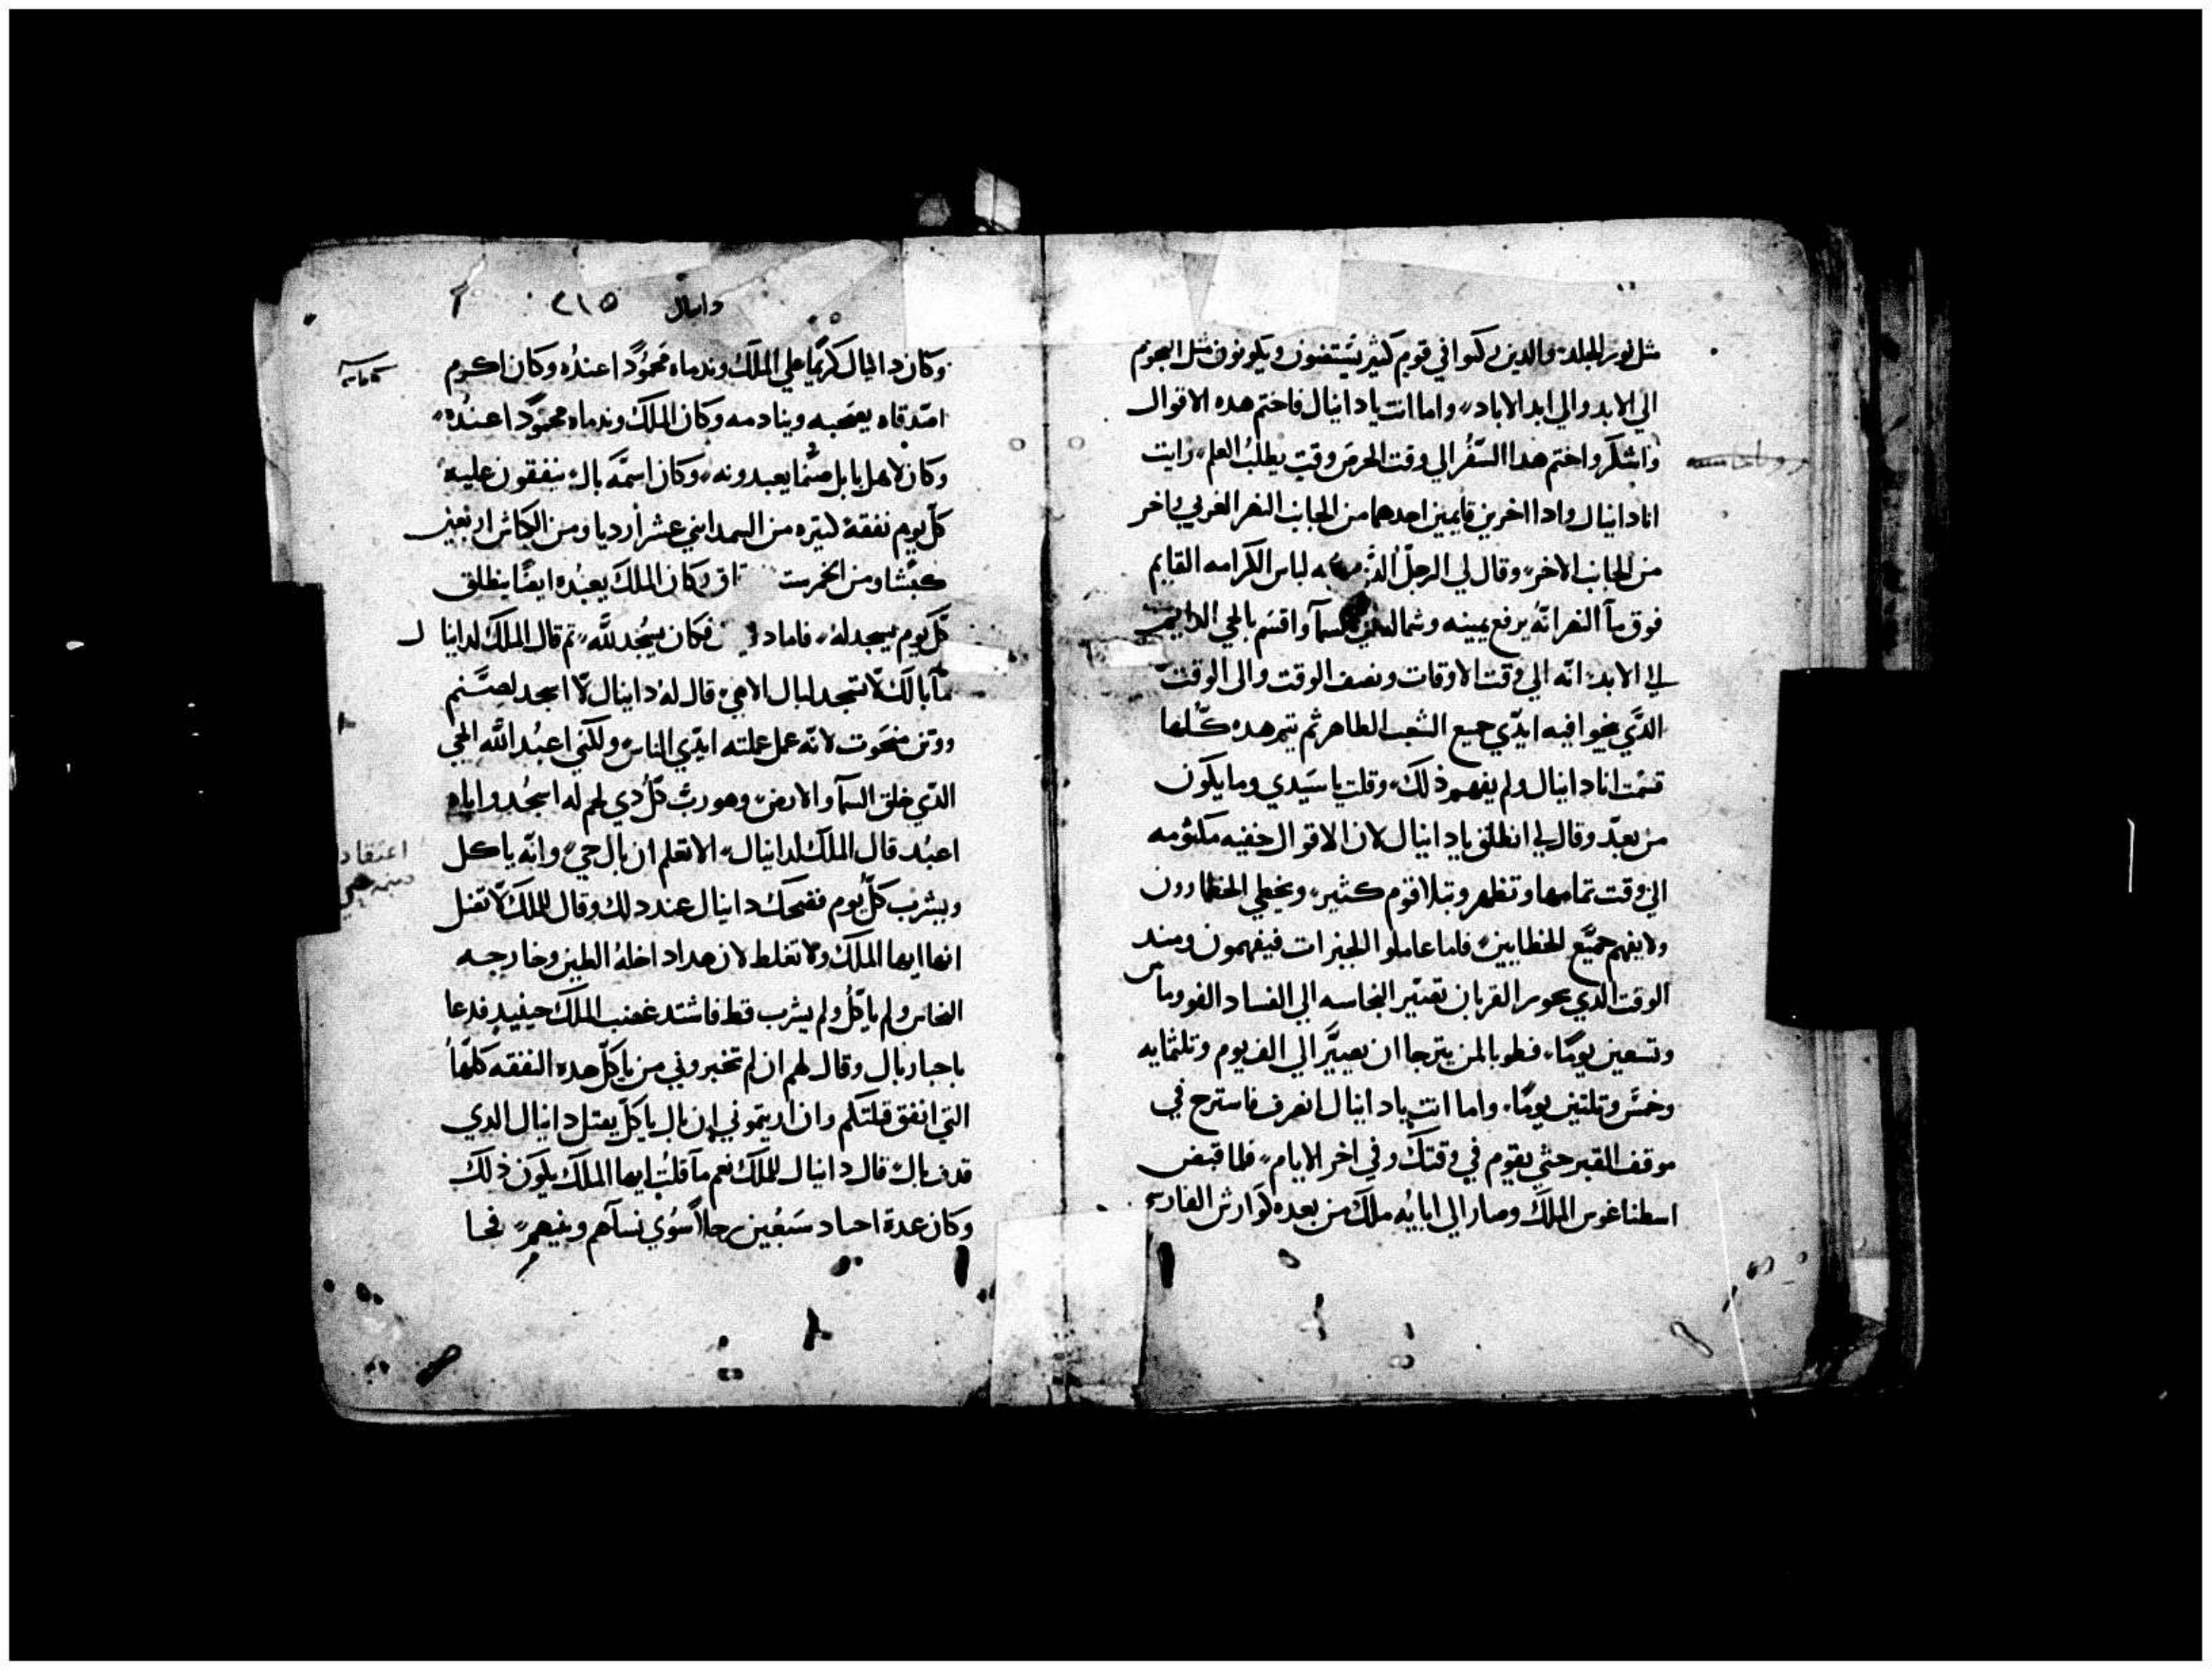 مثل نور الجلد والدين زكوا في قوم كثير يثبتون ويكونون مثل النجوم
الي الابد والي ابد الاباد واما انت يا دانيال فاختم هده الاقوال
واختم هدا السفر الي وقت وقت يطلب العلم ورايت
انا دانيال وادا اخرين قايمين احدهما من الجانب النهر الغربي واخر
من الجانب الاخر وقال لي الرجل لباس الكرامه القايم
فوق مآ النهر انه يرفع يمينه وشماله السمآ واقسم بالحي الدايم
الي الابد انه الي وقت الاوقات ونصف الوقت والى الوقت
الدي فيه ايدي جميع الشعب الطاهر ثم تتم هده كلها
قمت انا دانيال ولم يفهم ذلك وقلت يا سيدي وما يكون
من بعد وقال لي انطلق يا دانيال لان الاقوال خفيه مكتومه
الي وقت تمامها وتظهر وتبلا قوم كثير ويخطي الخطاوون
ولا يفهم جميع الخطايين فاما عاملوا الخيرات فيفهمون ومند
الوقت الدي القربان النجاسه الي الفساد الف وماتين
وتسعين يومًا فطوبا لمن يترجا ان يصير الي الف يوم وتلثمايه
وخمس وتلتين يومًا واما انت يا دانيال انصرف فاسترح في
موقف القبر حتي يقوم في وقتك وفي اخر الايام فلما قبض
الملك وصار الي ابايه ملك من بعده كوارش الفارسي
دانيال ٢١٥
وكان دانيال كريمًا علي الملك وندماه محمودًا عنده وكان اكرم
اصدقاه يصحبه وينادمه وكان الملك وندماه محمودًا عنده
وكان لاهل بابل صنمًا يعبدونه وكان اسمه بال ينفقون عليه
كل يوم نفقة كتيره من السمد اتني عشر ارديا ومن الكباش اربعين
كبشا ومن الخمر ست وكان الملك يعبده ايضًا ينطلق
كل يوم يسجد له فاما فكان يسجد لله تم قال الملك لدانيال
مآ بالك لا تسجد لبال الاهي قال له دانيال لا اسجد لصنم
ووتن منحوت لانه عمل عملته ايدي الناس ولكني اعبد الله الحي
الدي خلق السمآ والارض وهو رب كل دي لحم له اسجد واياه
اعبد قال الملك لدانيال الا تعلم ان بال حي وانه ياكل
ويشرب كل يوم فضحك دانيال عند دلك وقال للملك لا تضل
ايها الملك ولا تغلط لان هدا داخله الطين وخارجه
النحاس ولم ياكل ولم يشرب قط فاشتد غضب الملك حينيد فدعا
باحبار بال وقال لهم ان لم تخبروني من ياكل هده النفقه كلها
التي انفق قتلتكم وان اريتموني ان بال ياكل يقتل دانيال الدي
قدف بال قال دانيال للملك نعم مآ قلت ايها الملك يكون ذلك
وكان عدة احبار سبعين رجلاً سوي نسآهم وبنيهم فجا
اعتقاد